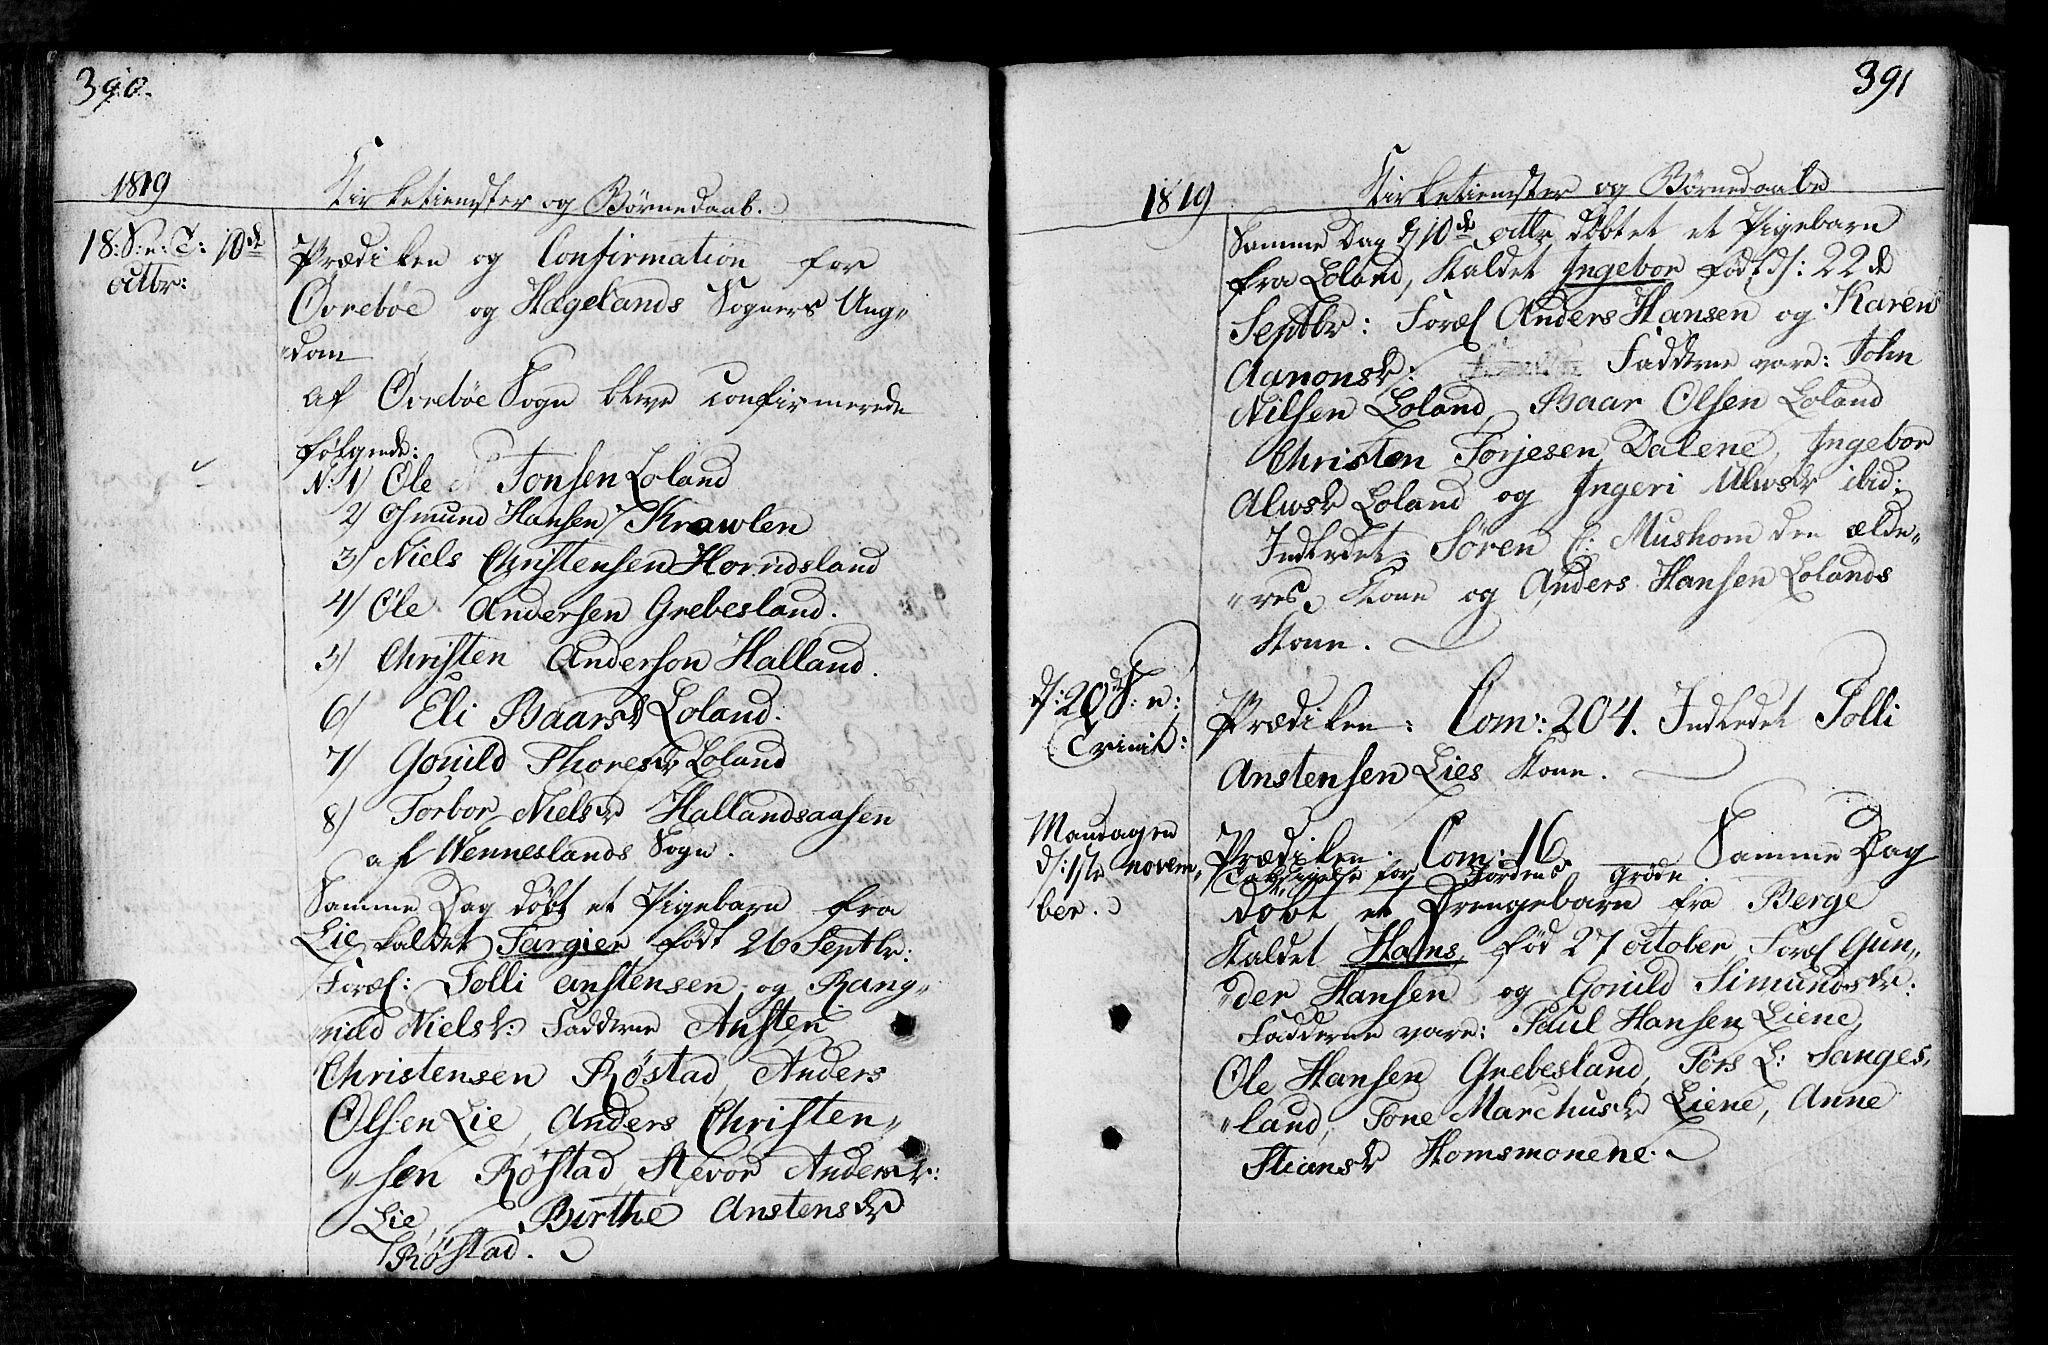 390.
1819
Kirketienster og Børnedaab.
18: S: n: T: 10de
octbr:
Prædiken og Confirmation for
Øvrebøe og Hægelands Sogners Ung„
„dom
af Øvrebøe Sogn bleve confirmerede
følgende:
N: 1) Ole Jonsen Loland
2) Osmund Hansen Krowlen
3) Niels Christensen Horridsland
4) Ole Andersen Grebesland.
5) Christen Anderson Halland.
6) Eli Baarsdr Loland.
7) Gonild Thoresdr Loland
8) Torbor Nielsdr Hallandsaasen
af Wenneslands Sogn.
Samme Dag døbt et Pigebarn fra
Lie kaldet Targier født 26 Septbr:
Foræl: Tolli anstensen og Rang„
„nild Nielsdr: Faddrene Ansten
Christensen Røstad, Anders
Olsen Lie, Anders Christen„
„sen Røstad, Stevor Andersdr:
Lie, Birthe Anstensdr
Røstad.
391
1819
Kirketienster og Børnedaabe
Samme Dag d 10de octbr døbtet et Pigebarn
fra Loland, Kaldet Ingebor født d: 22de
Septbr: Foræl Anders Hansen og Karen
Aanonsdr: Faddrene vare: John
Nilsen Loland, Baar Olsen Loland
Christen Torjesen Dalene, Ingebor
Alwsdr Loland og Ingeri Ulwsdr ibid:
Indledet Søren C: Mushom den ælde„
„res Kone og Anders Hansen Lolands
Kone.
d: 20de S: n:
Trinit:
Prædiken: Com: 204. Indledet Tolli
Anstensen Lies Kone.
Mandagen
d: 1ste novem„
ber.
Prædiken. Com: 16. Samme Dag
Taksigelse for Jordens grøde.
døbt et Drengebarn fra Berge
Kaldet Hans, fød 27 october, Foræl Gun„
„der Hansen og Gonild Simundsdr:
Fadderne vare: Paul Hansen Liene,
Ole Hansen Grebesland, Tørs L: Sanges„
„land, Tone Marchusdr Liene, Anne
Stiansdr Homsmonene.